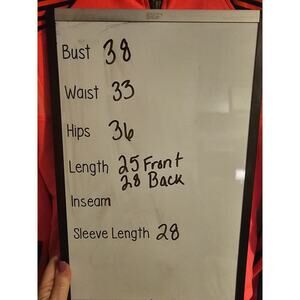 Bust 38
Waist 33
Hips 36
Length 25 Front
28 Back
Inseam
Sleeve Length 28